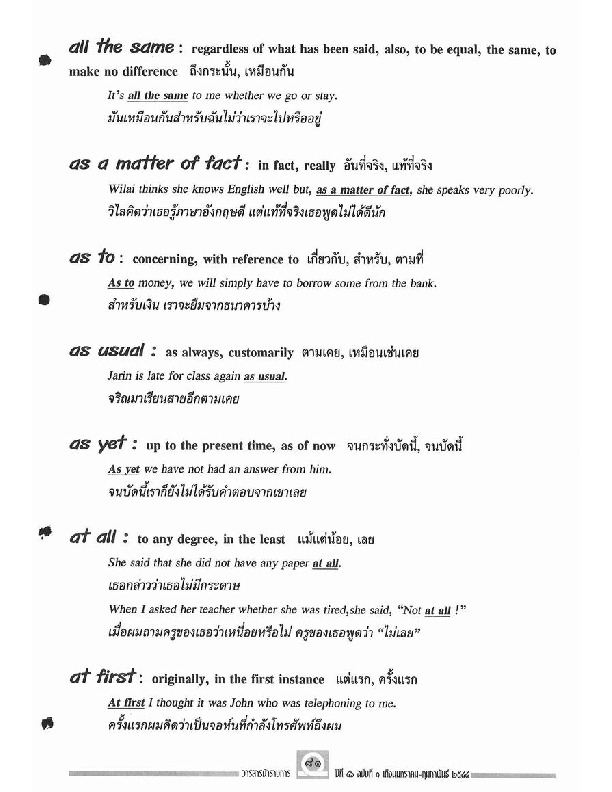 all the same : regardless of what has been said, also, to be equal, the same, to
make no difference ถึงกระนั้น, เหมือนกัน
It's all the same to me whether we go or stay.
มันเหมือนกันสำหรับฉันไม่ว่าเราจะไปหรืออยู่
as a matter of fact : in fact, really อันที่จริง, แท้ที่จริง
Wilai thinks she knows English well but, as a matter of fact, she speaks very poorly.
วิไลคิดว่าเธอรู้ภาษาอังกฤษดี แต่แท้ที่จริงเธอพูดไม่ได้ดีนัก
as to : concerning, with reference to เกี่ยวกับ, สำหรับ, ตามที่
As to money, we will simply have to borrow some from the bank.
สำหรับเงิน เราจะยืมจากธนาคารบ้าง
as usual : as always, customarily ตามเคย, เหมือนเช่นเคย
Jarin is late for class again as usual.
จริณมาเรียนสายอีกตามเคย
as yet : up to the present time, as of now จนกระทั่งบัดนี้, จนบัดนี้
As yet we have not had an answer from him.
จนบัดนี้เราก็ยังไม่ได้รับคำตอบจากเขาเลย
at all : to any degree, in the least แม้แต่น้อย, เลย
She said that she did not have any paper at all.
เธอกล่าวว่าเธอไม่มีกระดาษ
When I asked her teacher whether she was tired,she said, “Not at all !”
เมื่อผมถามครูของเธอว่าเหนื่อยหรือไม่ ครูของเธอพูดว่า “ไม่เลย”
at first : originally, in the first instance แต่แรก, ครั้งแรก
At first I thought it was John who was telephoning to me.
ครั้งแรกผมคิดว่าเป็นจอห์นที่กำลังโทรศัพท์ถึงผม
วารสารข้าราชการ ๘๑ ปีที่ ๔๖ ฉบับที่ ๑ เดือนมกราคม-กุมภาพันธ์ ๒๕๔๔